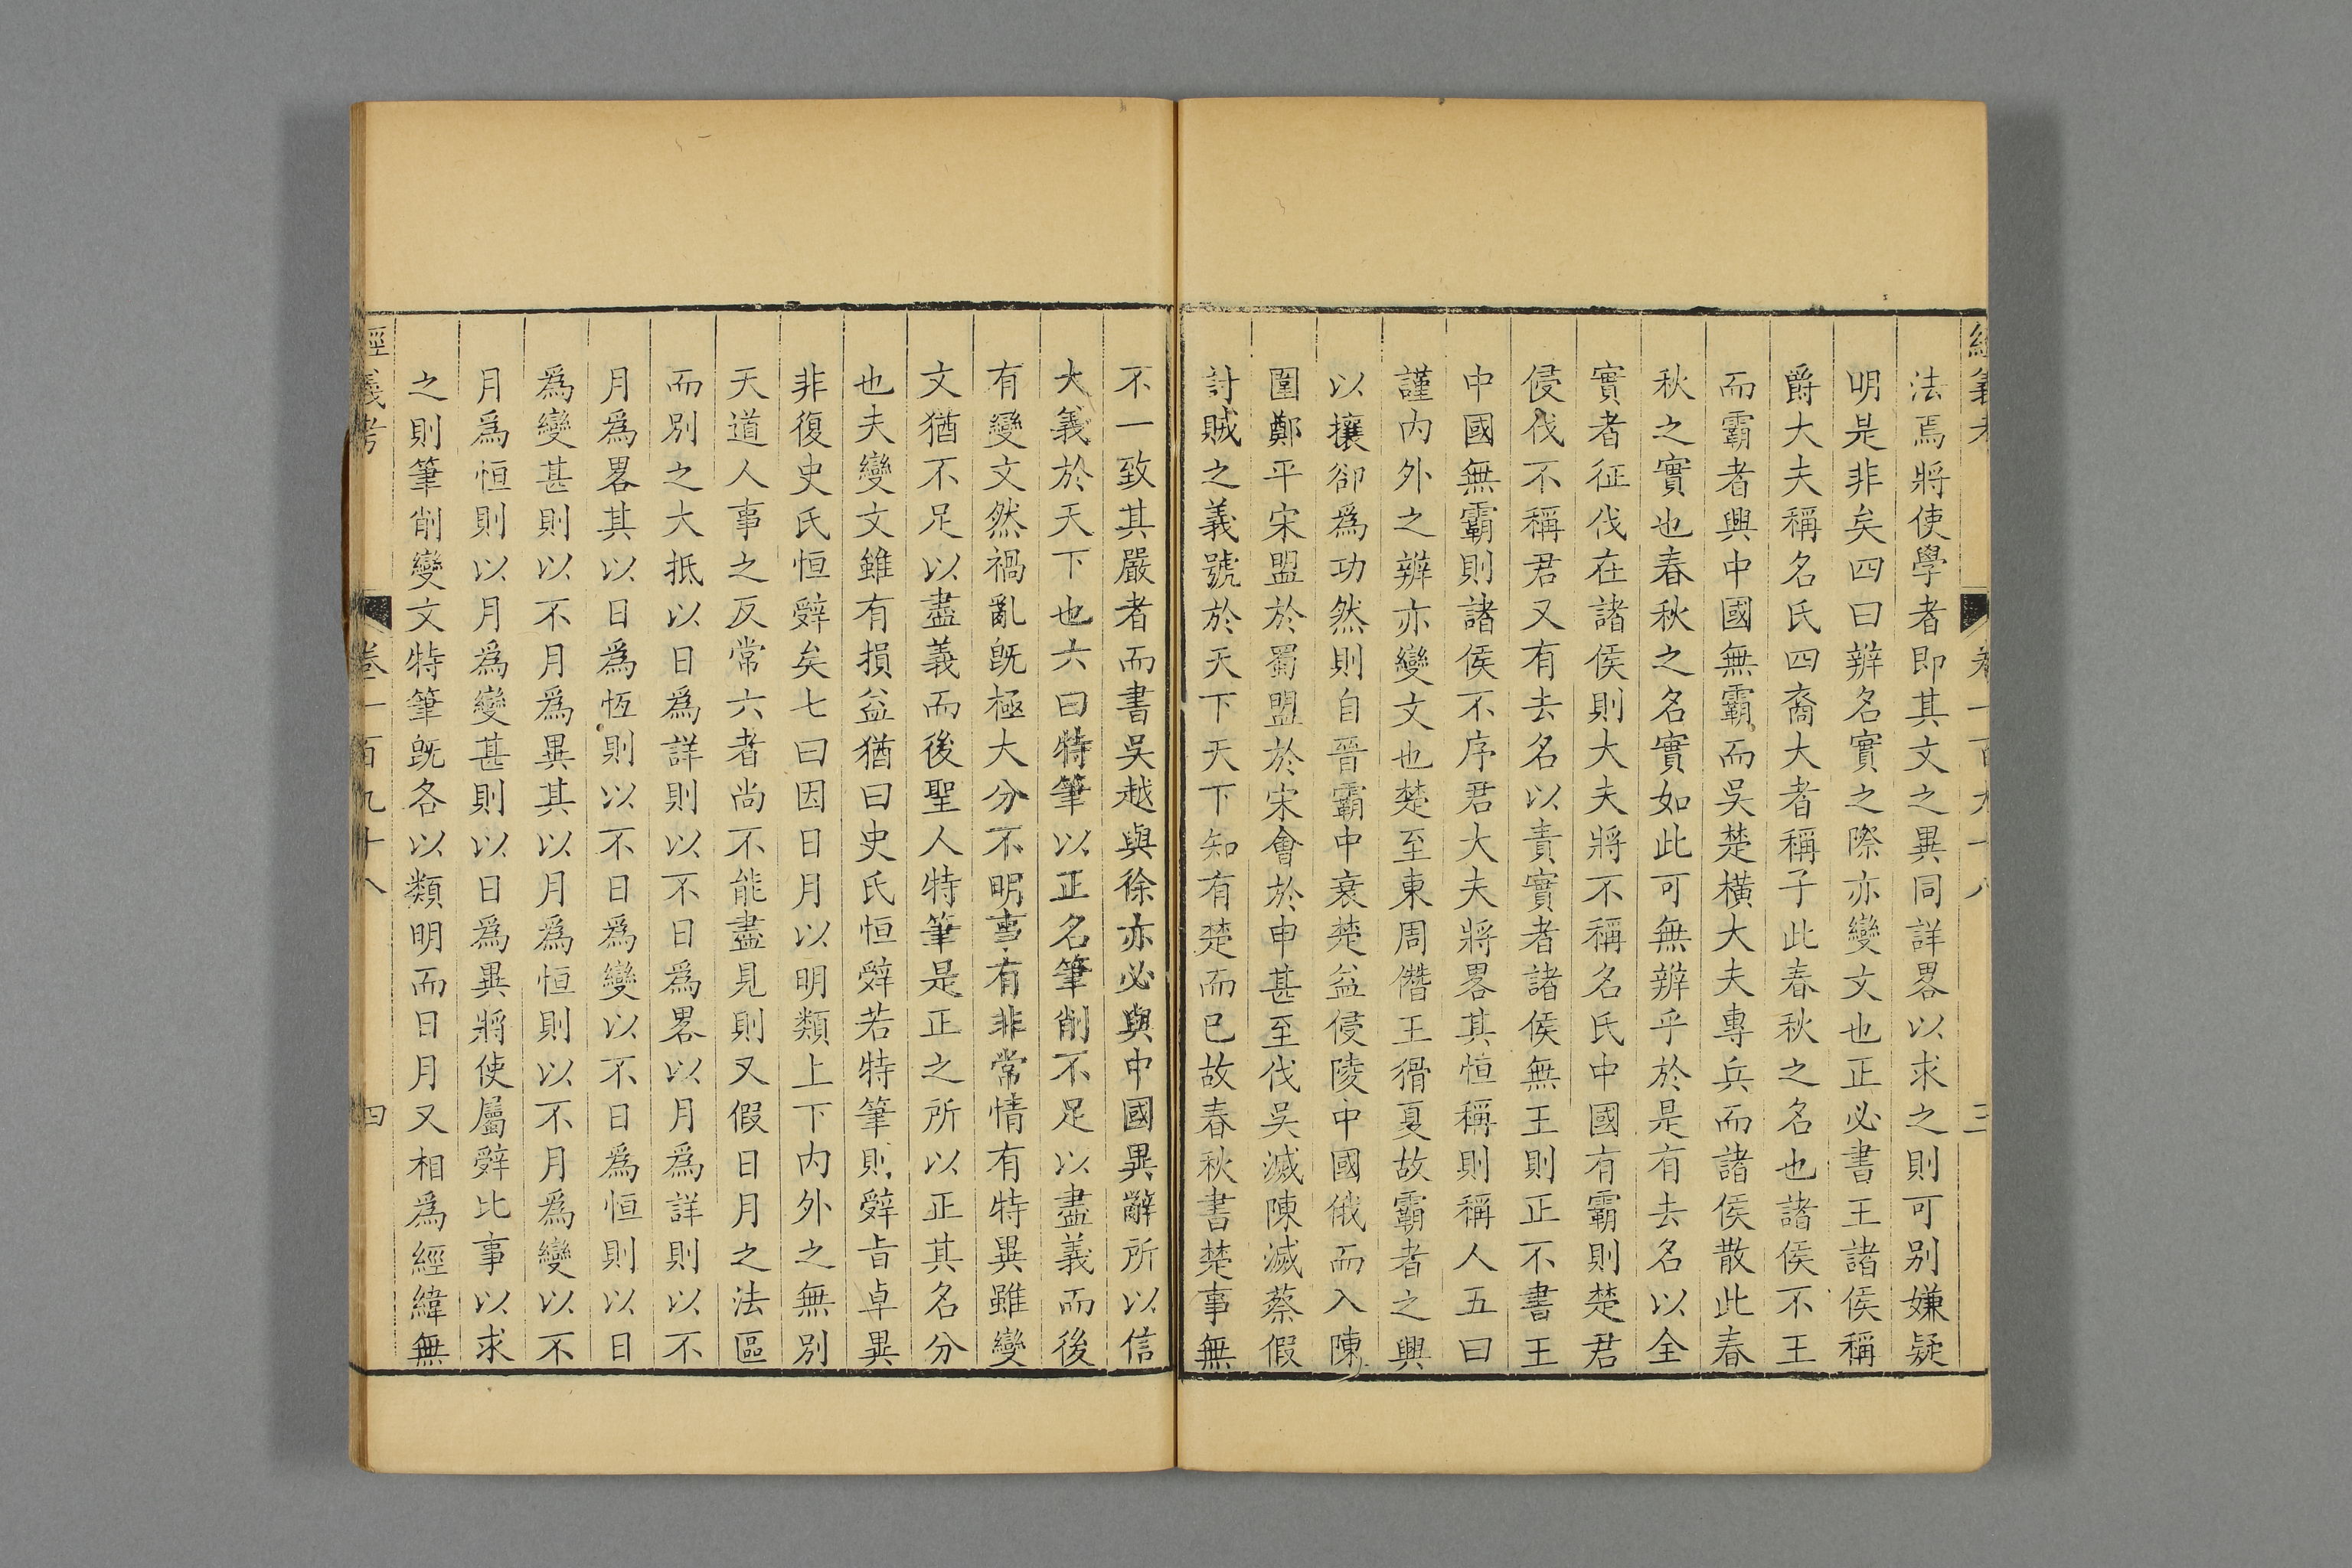 經義考 卷一百九十八 三
法焉將使學者即其文之異同詳畧以求之則可别嫌疑
明是非矣四曰辨名實之際亦變文也正必書王諸侯稱
爵大夫稱名氏四裔大者稱子此春秋之名也諸侯不王
而霸者興中國無霸而吳楚橫大夫專兵而諸侯散此春
秋之實也春秋之名實如此可無辨乎於是有去名以全
實者征伐在諸侯則大夫將不稱名氏中國有霸則楚君
侵伐不稱君又有去名以責實者諸侯無王則正不書王
中國無霸則諸侯不序君大夫將畧其恒稱則稱人五曰
謹内外之辨亦變文也楚至東周僭王猾夏故霸者之興
以攘卻爲功然則自晉霸中衰楚益侵陵中國俄而入陳
圍鄭平宋盟於蜀盟於宋會於申甚至伐吳滅陳滅蔡假
討賊之義號於天下天下知有楚而已故春秋書楚事無
不一致其嚴者而書吳越與徐亦必與中國異辭所以信
大義於天下也六曰特筆以正名筆削不足以盡義而後
有變文然禍亂旣極大分不明事有非常情有特異雖變
文猶不足以盡義而後聖人特筆是正之所以正其名分
也夫變文雖有損益猶曰史氏恒辤若特筆則辤旨卓異
非復史氏恒辤矣七曰因日月以明類上下内外之無别
天道人事之反常六者尚不能盡見則又假日月之法區
而别之大抵以日爲詳則以不日爲畧以月爲詳則以不
月爲畧其以日爲恆則以不日爲變以不日爲恒則以日
爲變甚則以不月爲異其以月爲恒則以不月爲變以不
月爲恒則以月爲變甚則以日爲異將使屬辤比事以求
之則筆削變文特筆旣各以類明而日月又相爲經緯無
經義考 卷一百九十八 四